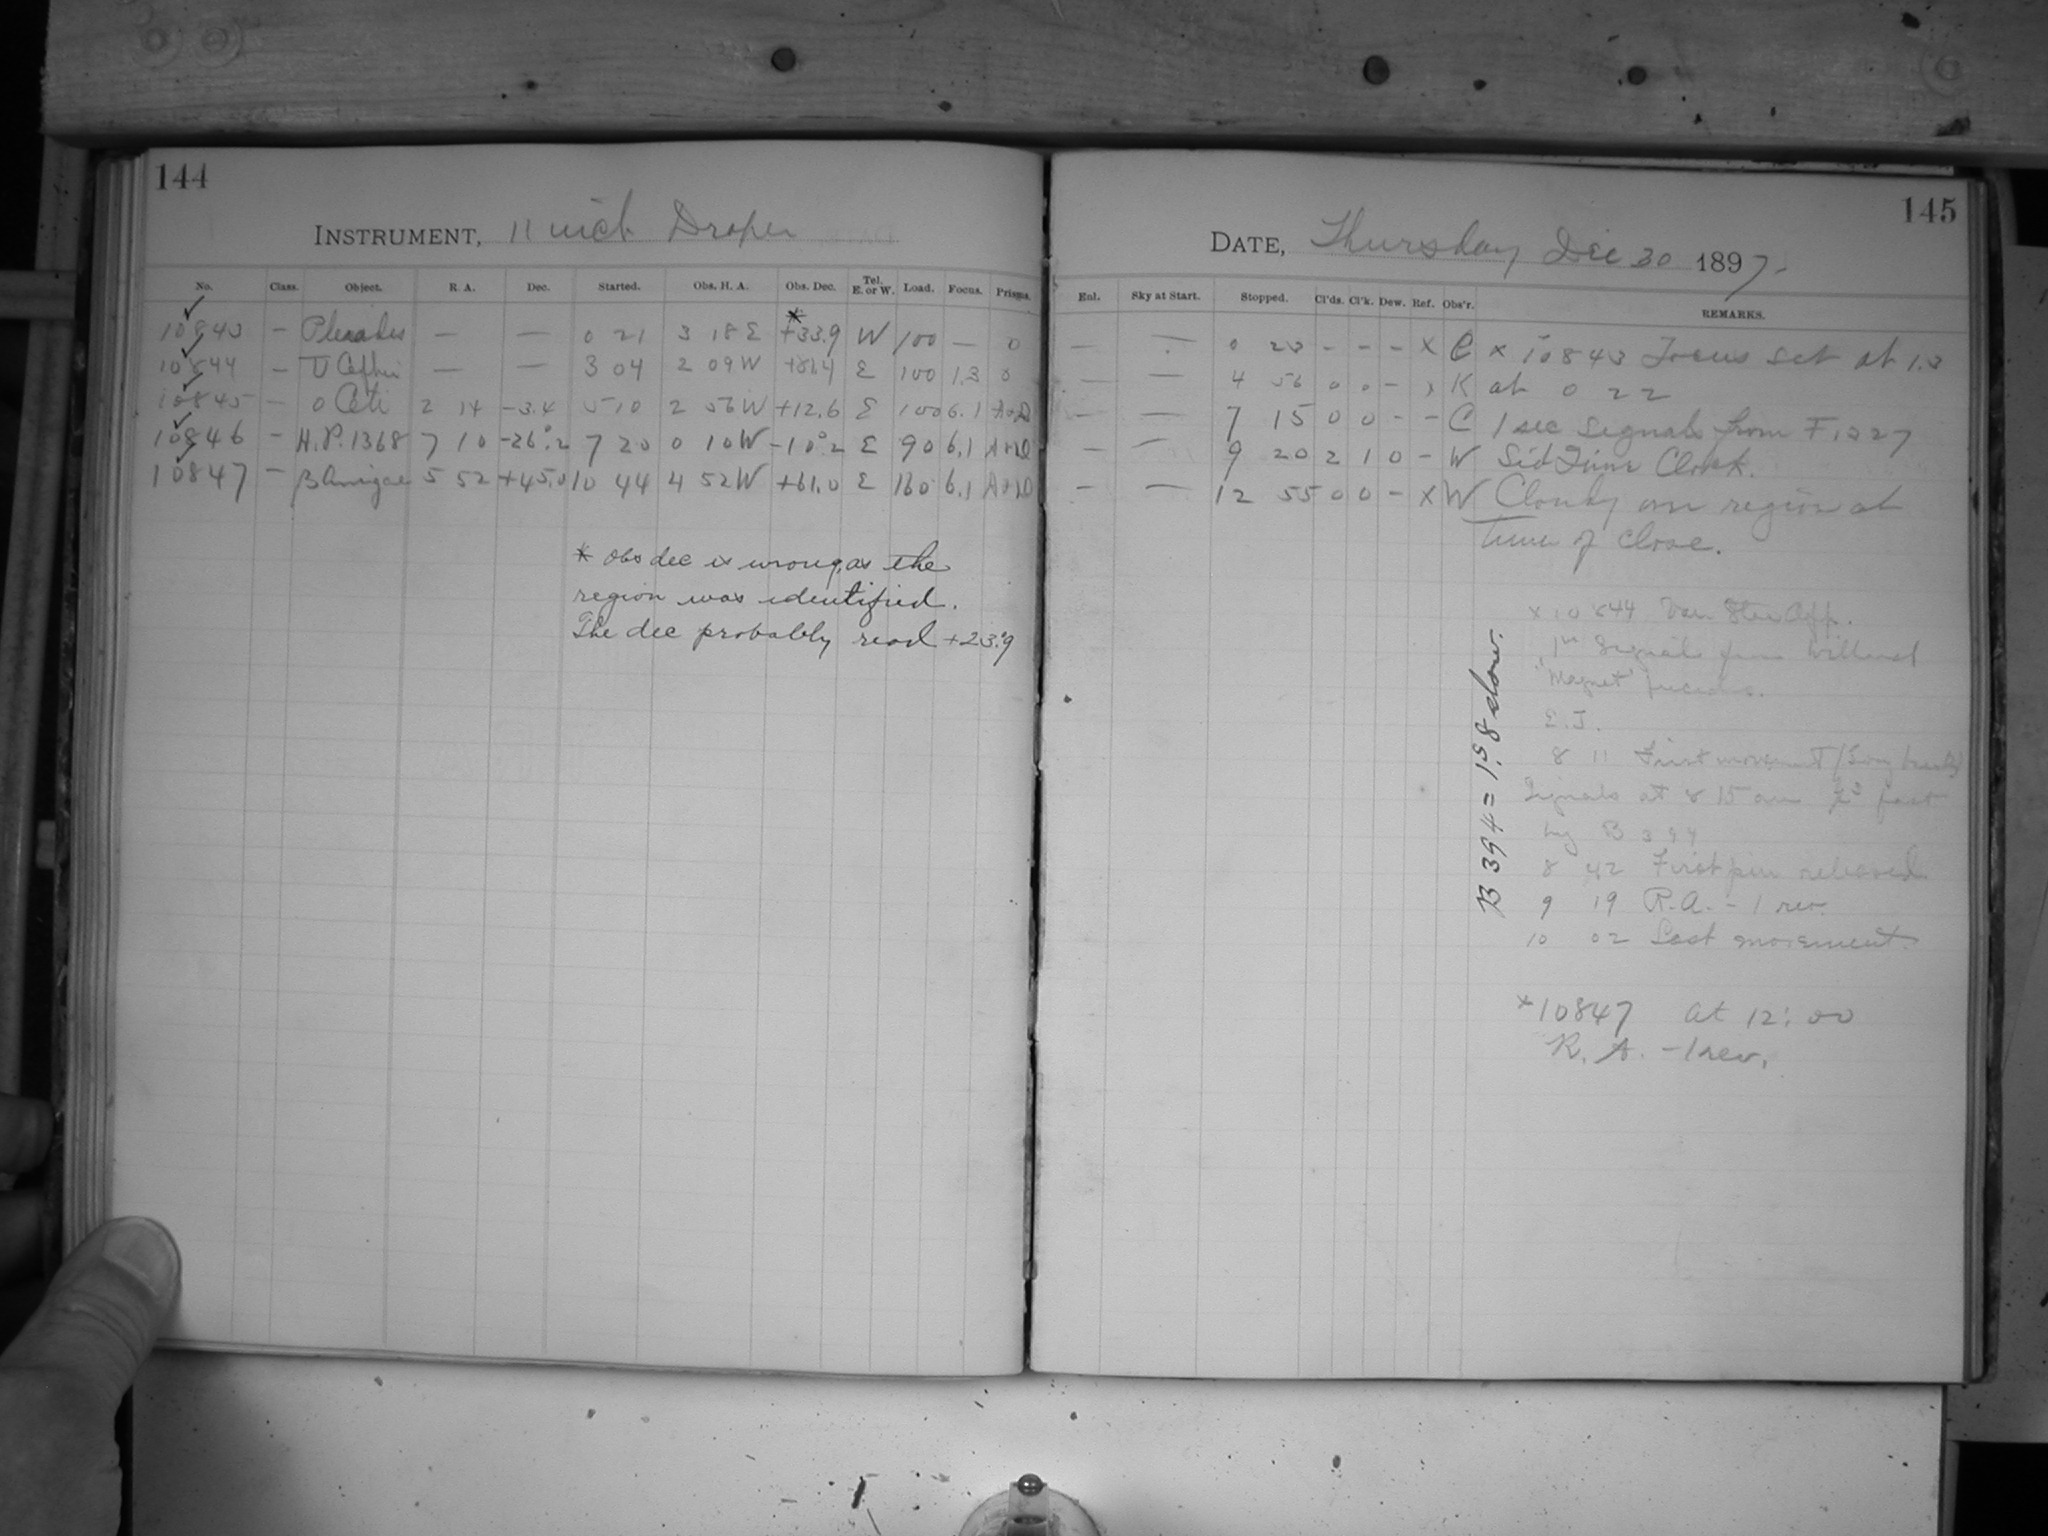 144
INSTRUMENT, 11 inch Draper
No. Class. Object. R. A. Dec. Started. Obs. H. A. Obs. Dec. Tel. E. or W. Load. Focus. Prisms.
10843 — Pleiades — — 0 21 3 18 E +33.9 W 100 — 0
10844 — U Cephei — — 3 04 2 09 W +81.4 E 100 1.3 0
10845 — o Ceti 2 14 -3.4 5 10 2 56 W +12.6 E 100 6.1 A+D
10846 — H.P. 1368 7 10 -26°.2 7 20 0 10 W -10°.2 E 90 6.1 A+D
10847 — β Aurigae 5 52 +45.0 10 44 4 52 W +61.0 E 160 6.1 A+D
* Obs dec is wrong, as the
region was identified.
The dec probably read +23.°9
145
DATE, Thursday Dec 30 1897.
Enl. Sky at Start. Stopped. Cl'ds. Cl'k. Dew. Ref. Obs'r. REMARKS.
— — 0 23 - - - x C x 10843 Focus set at 1.3
— — 4 56 0 0 - x K at 0 22
— — 7 15 0 0 - - C 1 sec signals from F.
— — 9 20 2 1 0 - W Sid Time Clock.
— — 12 55 0 0 - x W Cloudy over region at
Time of close.
x 10844 Var. Star App.
1st Signals from Willard
"Magnet"
E. J.
8 11 First movement
Signals at 8 15 are fast
by B 394
8 42 First pin released
9 19 R.A. - 1 rev.
10 02 Last movement.
B 394 = 1.ˢ8 slow.
x 10847 at 12:00
R. A. - 1 rev.